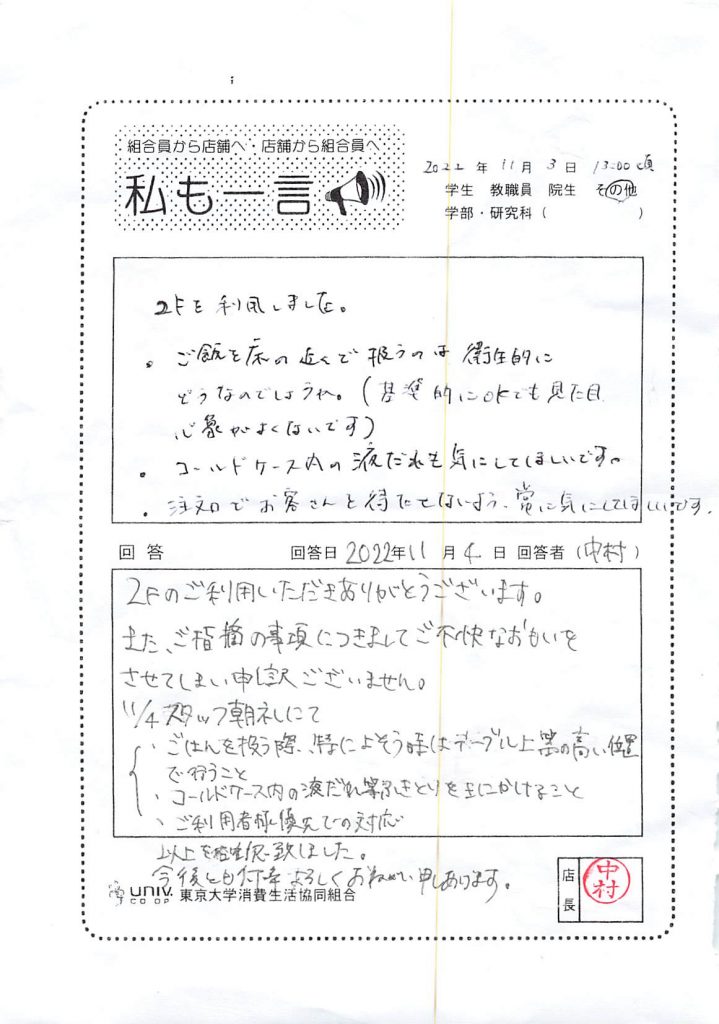 組合員から店舗へ・店舗から組合員へ
私も一言
2022年11月3日 13:00頃
学生 教職員 院生 その他
学部・研究科（ ）
2Fを利用しました。
・ご飯を床の近くで扱うのは衛生的に
どうなのでしょうか。(基準的にOKでも見た目
心象がよくないです)
・コールドケース内の液だれも気にしてほしいです。
・注文口でお客さんを待たせないよう、常に気にしてほしいです。
回答 回答日 2022年11月4日 回答者（中村）
2Fのご利用いただきありがとうございます。
また、ご指摘の事項につきましてご不快なおもいを
させてしまい申し訳ございません。
11/4 スタッフ朝礼にて
・ごはんを扱う際、特によそう時はテーブル上等の高い位置
で行うこと
・コールドケース内の液だれ等ふきとりを気にかけること
・ご利用者様優先での対応
以上を 致しました。
今後とも よろしくお願い申しあげます。
univ. CO-OP 東京大学消費生活協同組合
店長 中村